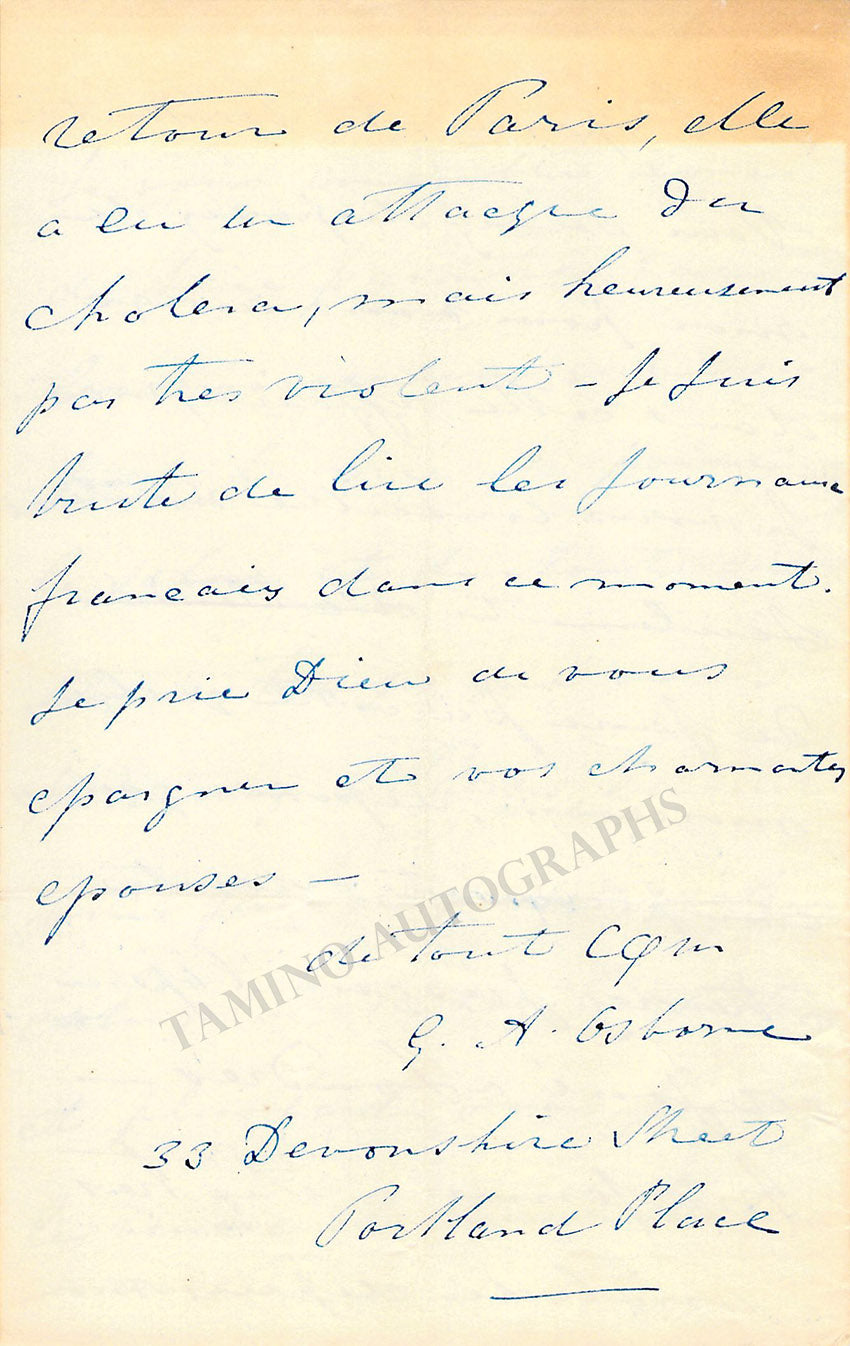 retour de Paris, elle
a eu un attacque du
cholera, mais heureusement
pas tres violent – Je suis
triste de lire les journaux
francais dans ce moment.
Je prie Dieu de vous
epargner et vos charmantes
epouses –
de tout cœur
G. A. Osborne
33 Devonshire Street
Portland Place
TAMINO AUTOGRAPHS